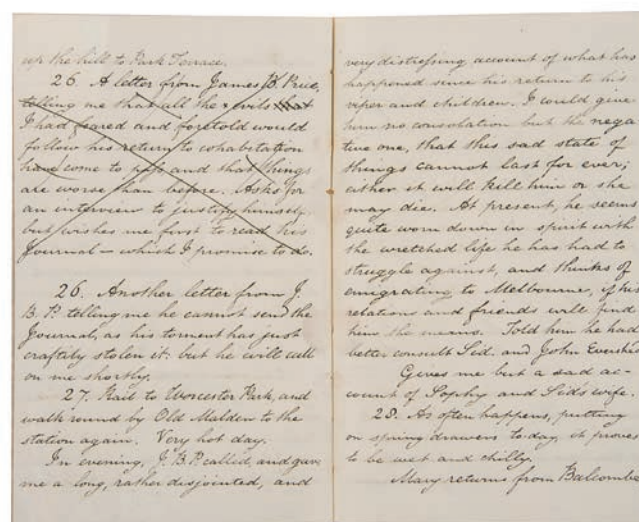 up the hill to Park Terrace.
26. A letter from James B. Price,
telling me that all the evils that
I had feared and foretold would
follow his return to cohabitation
have come to pass and that things
are worse than before. Asks for
an interview to justify himself,
but wishes me first to read his
Journal – which I promise to do.
26. Another letter from J.
B. P. telling me he cannot send the
Journal, as his torment has just
craftily stolen it: but he will call
on me shortly.
27. Rail to Worcester Park, and
walk round by Old Malden to the
station again. Very hot day.
In evening, J. B. P. called, and gave
me a long, rather disjointed, and
very distressing account of what has
happened since his return to his
viper and children. I could give
him no consolation but the nega
tive one, that this sad state of
things cannot last for ever;
either it will kill him or she
may die. At present, he seems
quite worn down in spirit with
the wretched life he has had to
struggle against, and thinks of
emigrating to Melbourne, if his
relations and friends will find
him the means. Told him he had
better consult Sid. and John Evershed
Gives me but a sad ac-
count of Sophy and Sid's wife.
28. As often happens, putting
on spring drawers today, it proves
to be wet and chilly.
Mary returns from Balcombe